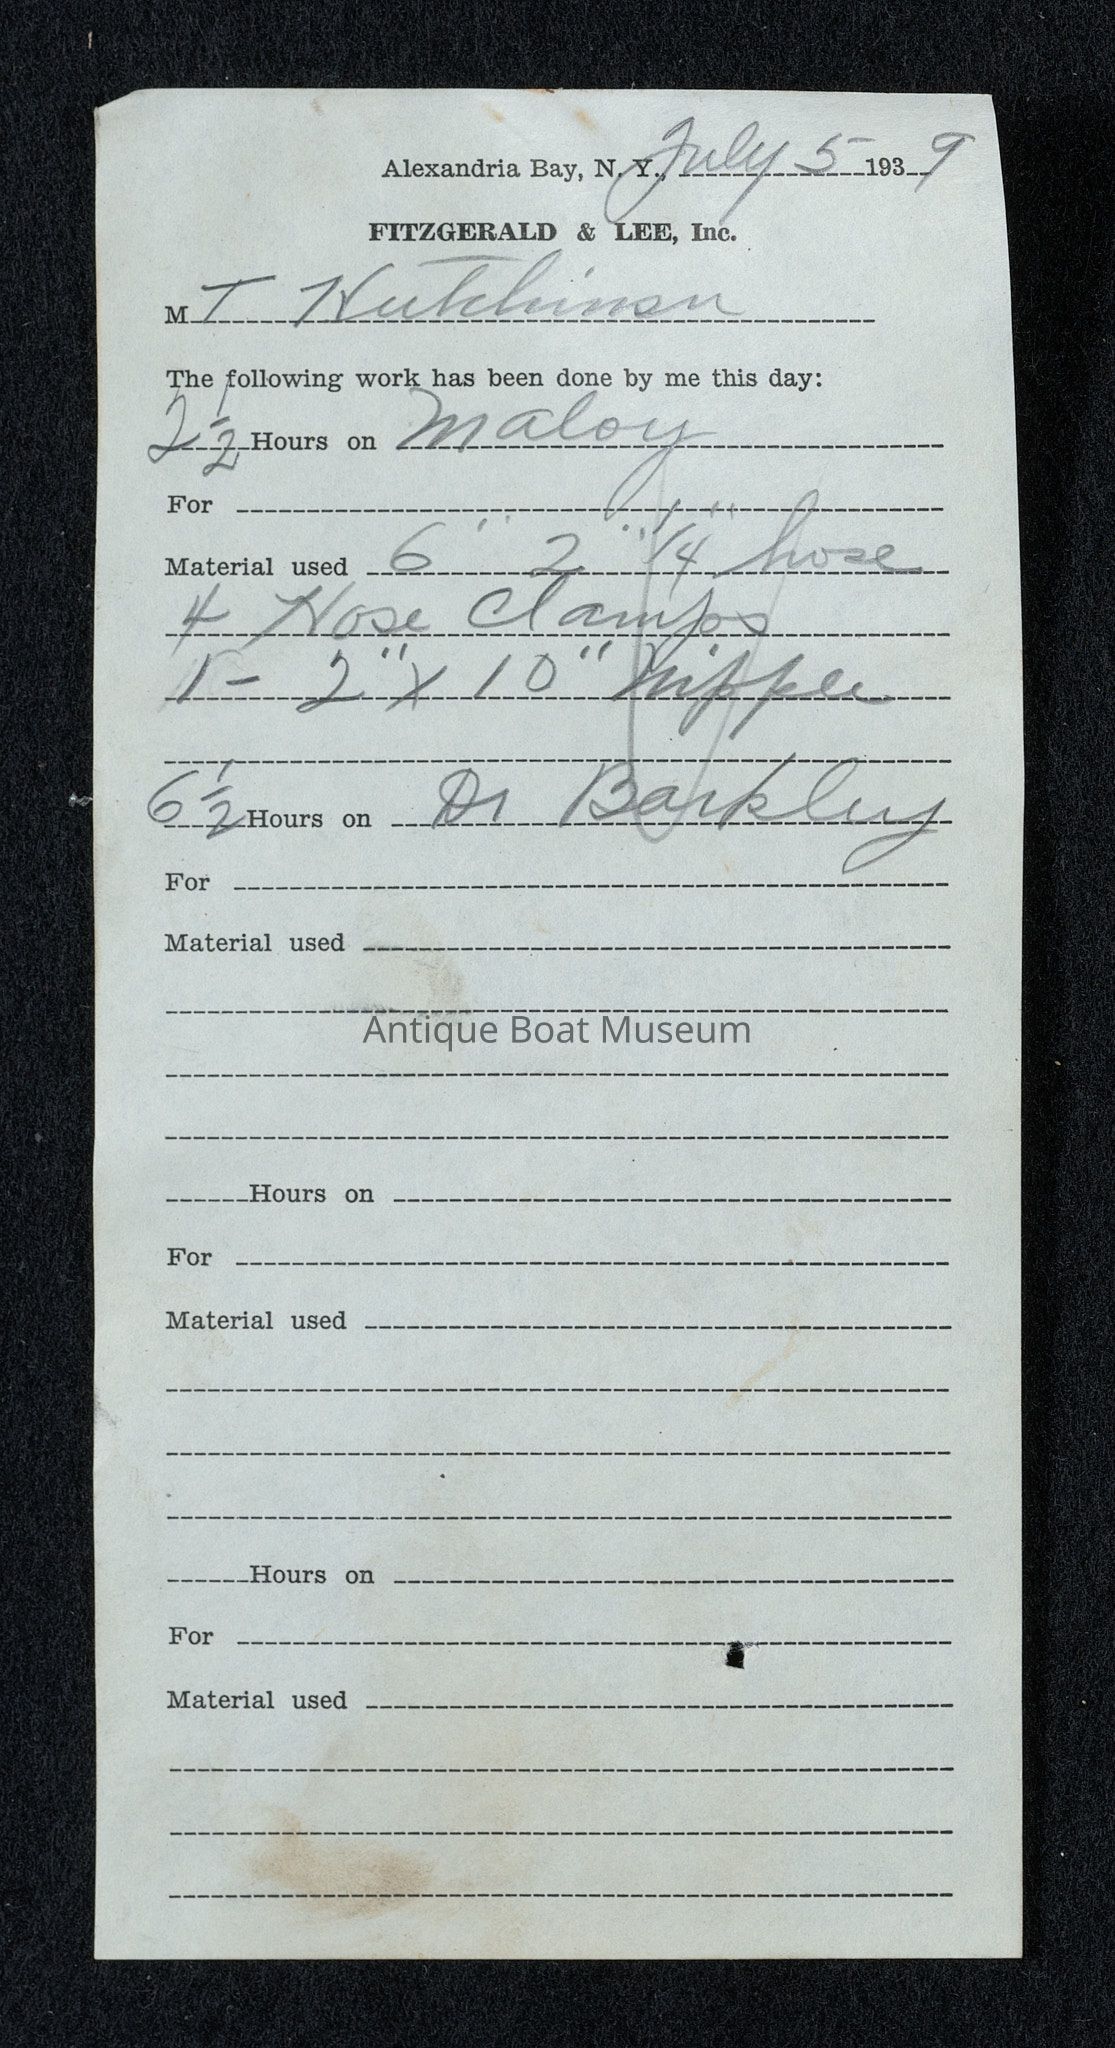 Alexandria Bay, N. Y., July 5 1939
FITZGERALD & LEE, Inc.
M T Hutchinson
The following work has been done by me this day:
2 1/2 Hours on Maloy
For
Material used 6" 2" 1/4" hose
4 Hose Clamps
1 - 2" x 10" Nipple
6 1/2 Hours on Dr Barkley
For
Material used
Antique Boat Museum
Hours on
For
Material used
Hours on
For
Material used